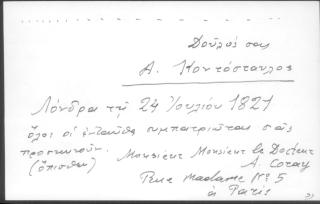 Δοῦλός σας
Α. Κοντόσταυλος
Λόνδρα τῇ 24 Ἰουλίου 1821
ὅλοι οἱ ἐνταῦθα συμπατριῶται σᾶς
προσκυνοῦν.
(ὄπισθεν)
Monsieur Monsieur le Docteur
A. Coray
Rue Madame No. 5
à Paris